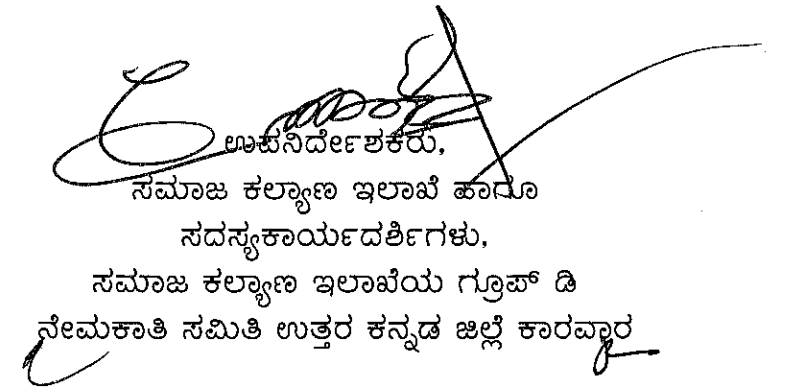 ಉಪನಿರ್ದೇಶಕರು,
ಸಮಾಜ ಕಲ್ಯಾಣ ಇಲಾಖೆ ಹಾಗೂ
ಸದಸ್ಯಕಾರ್ಯದರ್ಶಿಗಳು,
ಸಮಾಜ ಕಲ್ಯಾಣ ಇಲಾಖೆಯ ಗ್ರೂಪ್ ಡಿ
ನೇಮಕಾತಿ ಸಮಿತಿ ಉತ್ತರ ಕನ್ನಡ ಜಿಲ್ಲೆ ಕಾರವಾರ